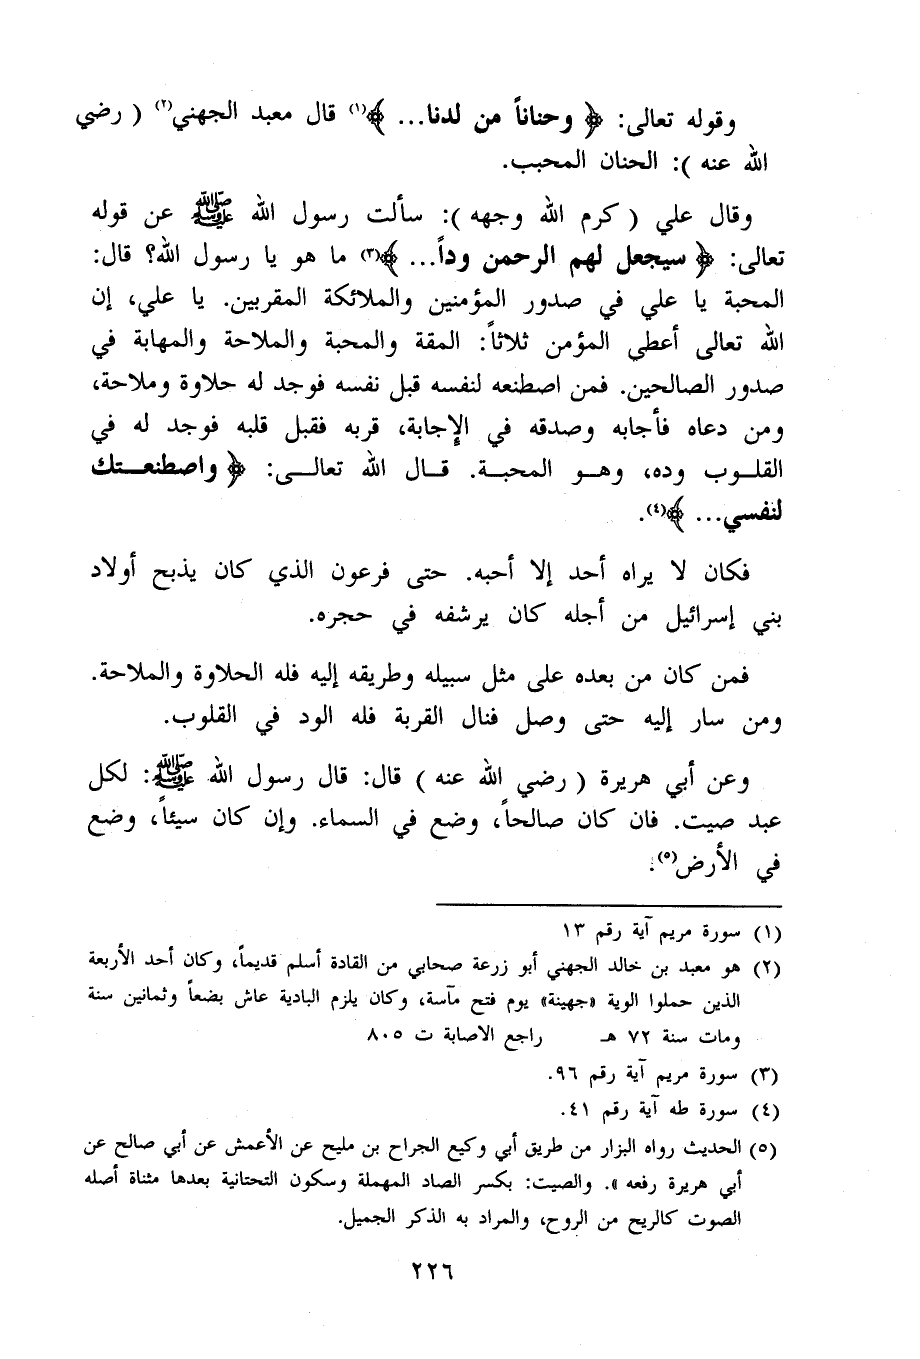 وقوله تعالى: ﴿ وحناناً من لدنا... ﴾(١) قال معبد الجهني(٢) ( رضي
الله عنه ): الحنان المحبب.
وقال علي ( كرم الله وجهه ): سألت رسول الله ﷺ عن قوله
تعالى: ﴿ سيجعل لهم الرحمن وداً... ﴾(٣) ما هو يا رسول الله؟ قال:
المحبة يا علي في صدور المؤمنين والملائكة المقربين. يا علي، إن
الله تعالى أعطي المؤمن ثلاثاً: المقة والمحبة والملاحة والمهابة في
صدور الصالحين. فمن اصطنعه لنفسه قبل نفسه فوجد له حلاوة وملاحة،
ومن دعاه فأجابه وصدقه في الإجابة، قربه فقبل قلبه فوجد له في
القلوب وده، وهو المحبة. قال الله تعالى: ﴿ واصطنعتك
لنفسي... ﴾(٤).
فكان لا يراه أحد إلا أحبه. حتى فرعون الذي كان يذبح أولاد
بني إسرائيل من أجله كان يرشفه في حجره.
فمن كان من بعده على مثل سبيله وطريقه إليه فله الحلاوة والملاحة.
ومن سار إليه حتى وصل فنال القربة فله الود في القلوب.
وعن أبي هريرة ( رضي الله عنه ) قال: قال رسول الله ﷺ: لكل
عبد صيت. فان كان صالحاً، وضع في السماء. وإن كان سيئاً، وضع
في الأرض(٥).
(١) سورة مريم آية رقم ١٣
(٢) هو معبد بن خالد الجهني أبو زرعة صحابي من القادة أسلم قديماً، وكان أحد الأربعة
الذين حملوا الوية «جهينة» يوم فتح مآسة، وكان يلزم البادية عاش بضعاً وثمانين سنة
ومات سنة ٧٢ هـ راجع الاصابة ت ٨٠٥
(٣) سورة مريم آية رقم ٩٦.
(٤) سورة طه آية رقم ٤١.
(٥) الحديث رواه البزار من طريق أبي وكيع الجراح بن مليح عن الأعمش عن أبي صالح عن
أبي هريرة رفعه ». والصيت: بكسر الصاد المهملة وسكون التحتانية بعدها مثناة أصله
الصوت كالريح من الروح، والمراد به الذكر الجميل.
٢٢٦